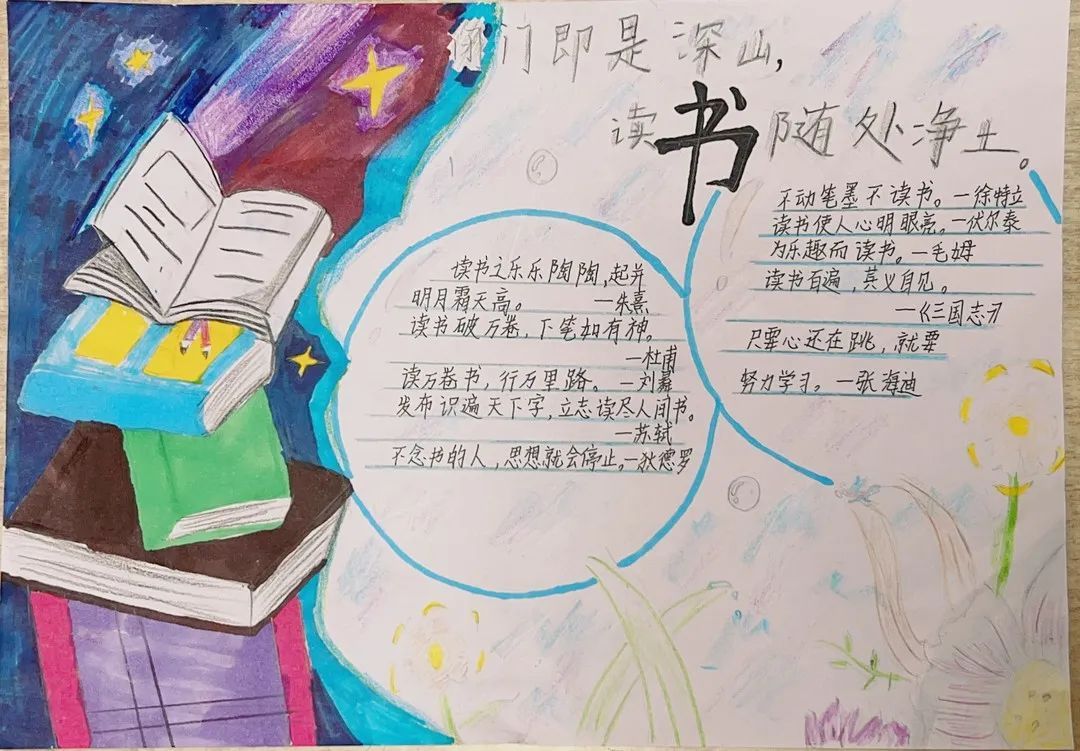 闭门即是深山,
读书随处净土。
读书之乐乐陶陶,起弄
明月霜天高。 —朱熹
读书破万卷,下笔如有神。
—杜甫
读万卷书,行万里路。—刘彝
发布识遍天下字,立志读尽人间书。
—苏轼
不念书的人,思想就会停止。—狄德罗
不动笔墨不读书。—徐特立
读书使人心明眼亮。—伏尔泰
为乐趣而读书。—毛姆
读书百遍,其义自见。
—《三国志》
只要心还在跳,就要
努力学习。—张海迪